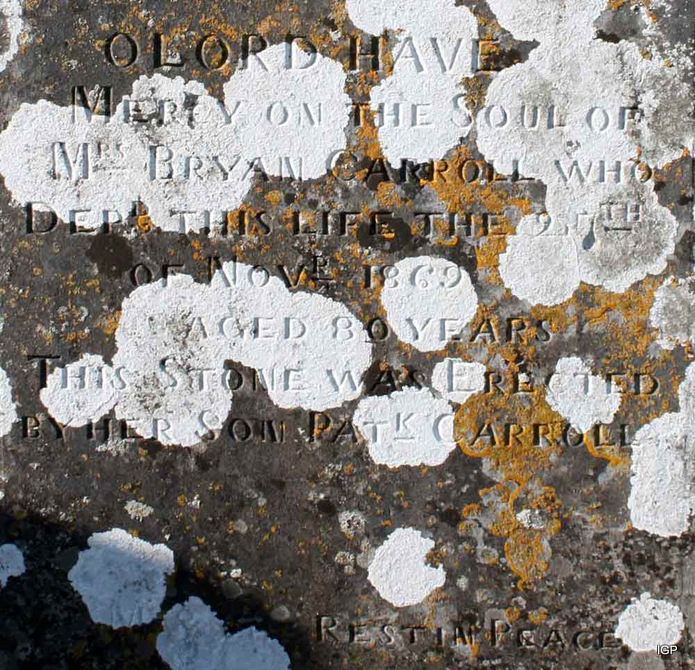 O LORD HAVE
MERCY ON THE SOUL OF
MRS BRYAN CARROLL WHO
DEPD THIS LIFE THE 25TH
OF NOVR 1869
AGED 80 YEARS
THIS STONE WAS ERECTED
BY HER SON PATK CARROLL
REST IN PEACE
IGP